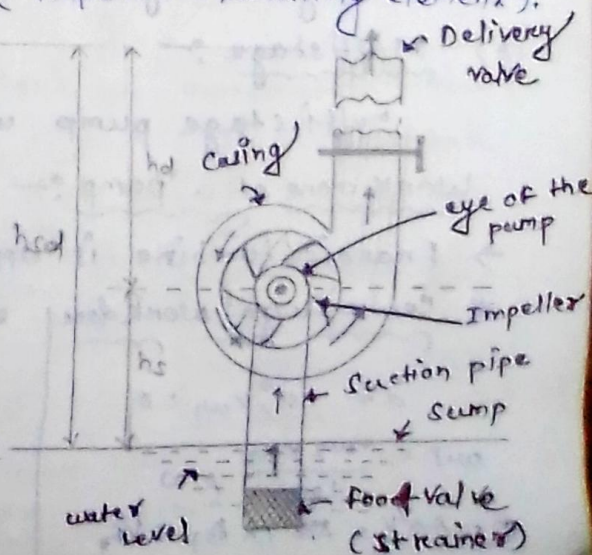 Delivery
valve
Casing
eye of the
pump
Impeller
hd
Suction pipe
Sump
water
level
foot-valve
(strainer)